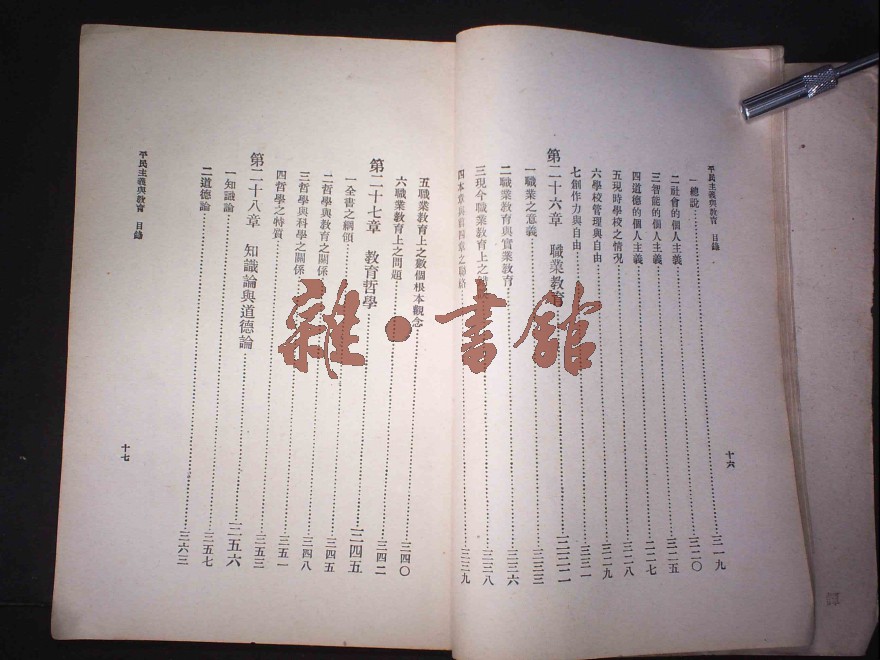 平民主義與教育 目錄
一總說……三一九
二社會的個人主義……三二〇
三智能的個人主義……三二五
四道德的個人主義……三二七
五現時學校之情況……三二八
六學校管理與自由……三二九
七創作力與自由……三三一
第二十六章 職業教育……三三三
一職業之意義……三三三
二職業教育與實業教育……三三六
三現今職業教育上之……三三八
四本章與前四章之聯絡……三三九
十六
五職業教育上之數個根本觀念……三四〇
六職業教育上之問題……三四二
第二十七章 教育哲學……三四五
一全書之綱領……三四五
二哲學與教育之關係……三四八
三哲學與科學之關係……三五一
四哲學之特質……三五三
第二十八章 知識論與道德論……三五六
一知識論……三五七
二道德論……三六三
平民主義與教育 目錄
十七
雜·書館